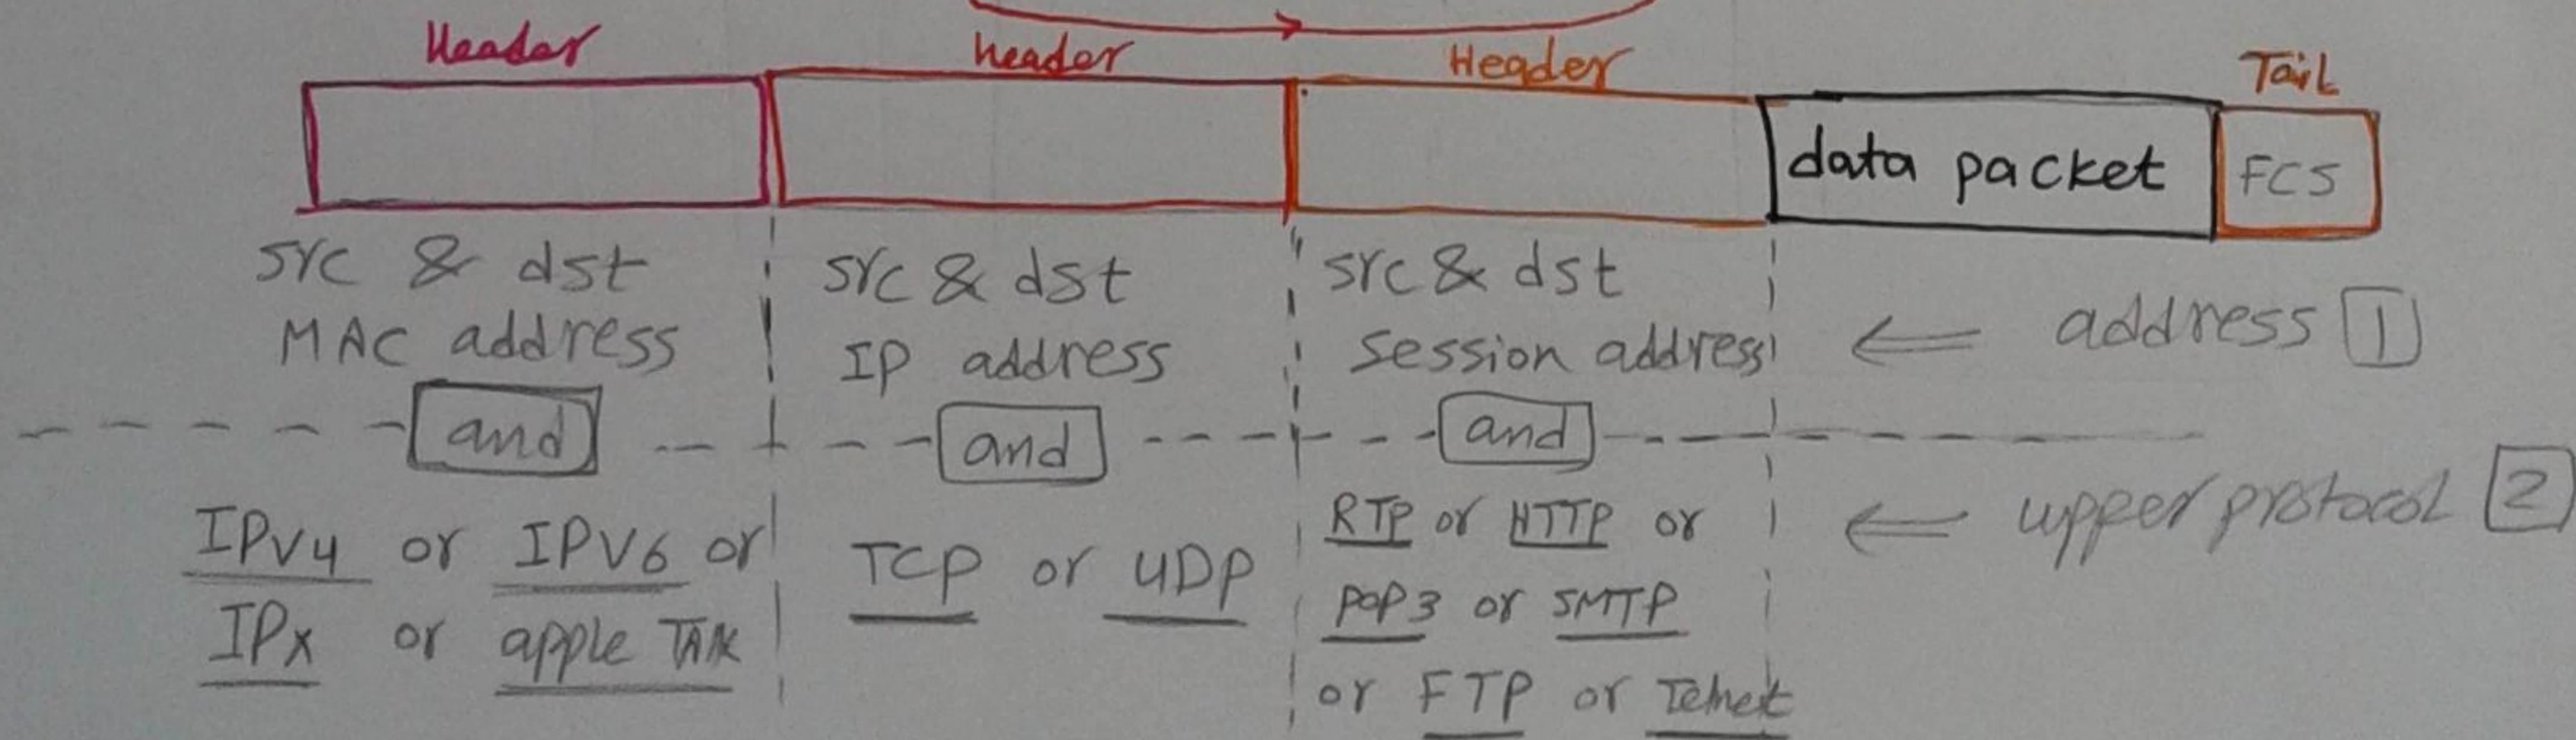 Header
header
Header
Tail
data packet
FCS
src & dst
MAC address
and
IPV4 or IPV6 or
IPX or apple Talk
src & dst
IP address
and
TCP or UDP
src & dst
session address
and
RTP or HTTP or
POP3 or SMTP
or FTP or Telnet
⇐ address 1
⇐ upper protocol 2